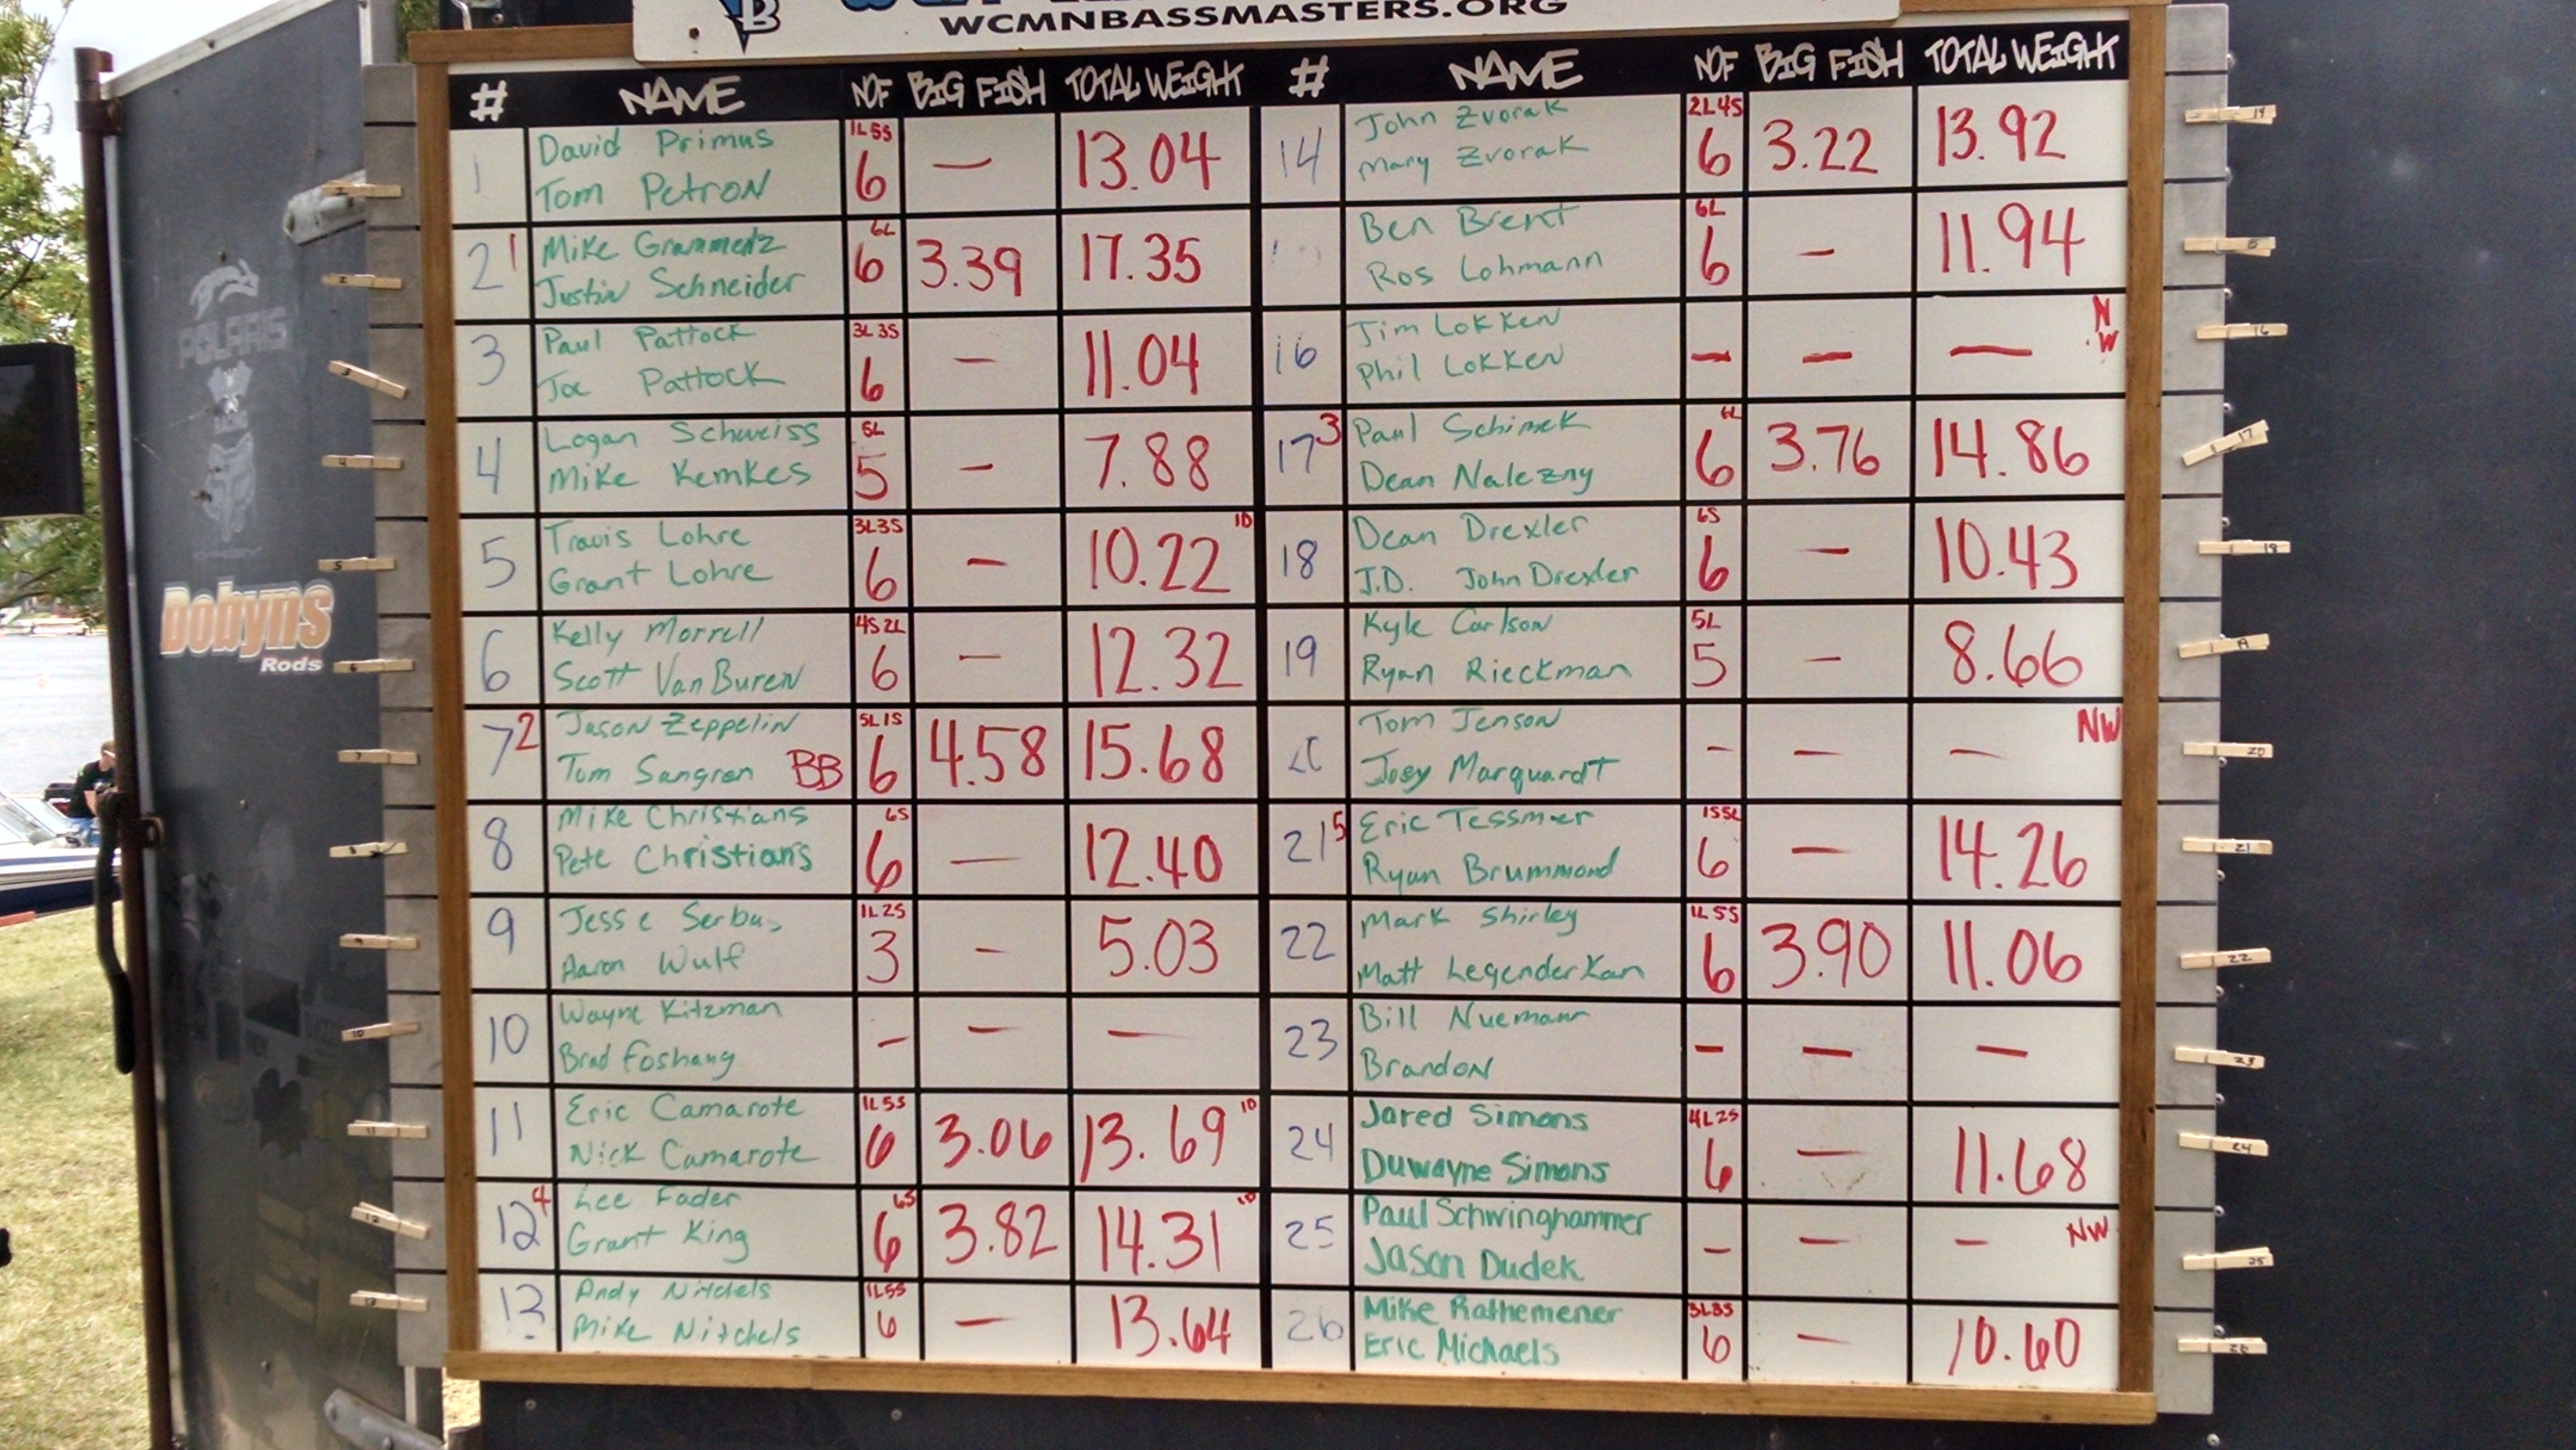 WCMNBASSMASTERS.ORG
# NAME NOF BIG FISH TOTAL WEIGHT
1 David Primus 1L5S
Tom Petron 6 — 13.04
2 1 Mike Grammentz 6L
Justin Schneider 6 3.39 17.35
3 Paul Pattock 3L3S
Joe Pattock 6 — 11.04
4 Logan Schweiss 5L
Mike Kemkes 5 — 7.88
5 Travis Lohre 3L3S 1D
Grant Lohre 6 — 10.22
6 Kelly Morrell 4S2L
Scott VanBuren 6 — 12.32
7 2 Jason Zeppelin 5L1S
Tom Sangren BB 6 4.58 15.68
8 Mike Christians 6S
Pete Christians 6 — 12.40
9 Jesse Serbus 1L2S
Aaron Wulf 3 — 5.03
10 Wayne Kitzman
Brad Foshang — — —
11 Eric Camarote 1L5S 1D
Nick Camarote 6 3.06 13.69
12 4 Lee Fader 6S 1D
Grant King 6 3.82 14.31
13 Andy Nitchels 1L5S
Mike Nitchels 6 — 13.64
# NAME NOF BIG FISH TOTAL WEIGHT
14 John Zvorak 2L4S
Mary Zvorak 6 3.22 13.92
Ben Brent 6L
Ros Lohmann 6 — 11.94
16 Jim Lokken NW
Phil Lokken — — —
17 3 Paul Schimek 6L
Dean Nalezny 6 3.76 14.86
18 Dean Drexler 6S
J.D. John Drexler 6 — 10.43
19 Kyle Carlson 5L
Ryan Rieckman 5 — 8.66
20 Tom Jenson NW
Joey Marquardt — — —
21 5 Eric Tessmer 1S5L
Ryan Brummond 6 — 14.26
22 Mark Shirley 1L5S
Matt Legenderkan 6 3.90 11.06
23 Bill Nuemann
Brandon — — —
24 Jared Simons 4L2S
Duwayne Simons 6 — 11.68
25 Paul Schwinghammer NW
Jason Dudek — — —
26 Mike Rathemener 3L3S
Eric Michaels 6 — 10.60
POLARIS
RACING
Dobyns
Rods